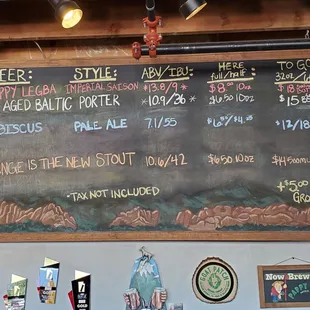 BEER: STYLE: ABV/IBU HERE TO GO
full/half 32oz/
PPY LEGBA IMPERIAL SAISON *9.3/39* $8 10oz
AGED BALTIC PORTER *10.9/36* $6.50 10oz $15
BISCUS PALE ALE 7.1/55 $12/18
NGE IS THE NEW STOUT 10.6/42 $6.50 10oz
*TAX NOT INCLUDED
+$5.00
GRO
Now Bre
PAPPY
GOLD